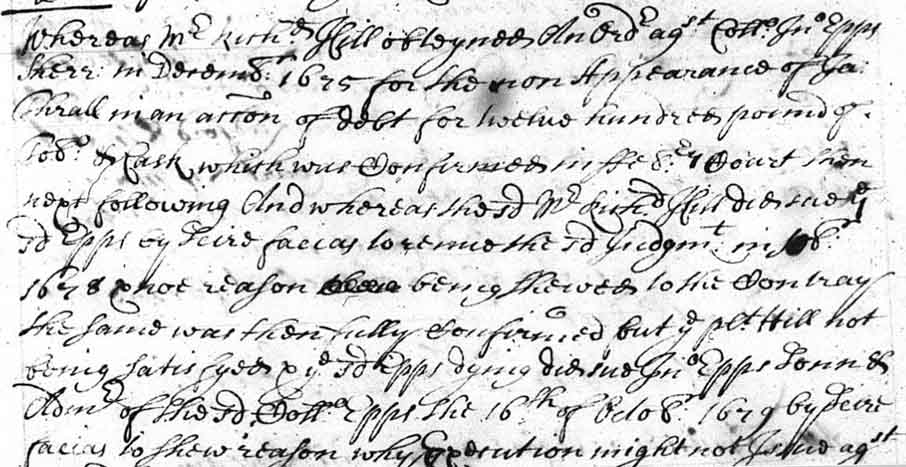 Whereas Mr Rich:d Hill obteyned An Ordr agst Collo: Jno Epps
Sherr: in Decembr: 1675 for the non Appearance of Ja:
Thrall in an acc̃on of debt for twelve hundred pound of
Tobo: & Cask, which was Confirmed in ffebr:y Court then
next following And whereas the sd Mr Richd Hill did sue ye
sd Epps by Scire facias to renue the sd Judgmt: in
1678 & noe reason being shewed to the Contrary
the same was then fully Confirmed but ye plt Hill not
being satisfyed & ye sd Epps dying did sue Jno Epps Sonn &
Admr of the sd Collo Epps the 16th of Octobr 1679 by Scire
facias to shew reason why Execution might not Issue agst